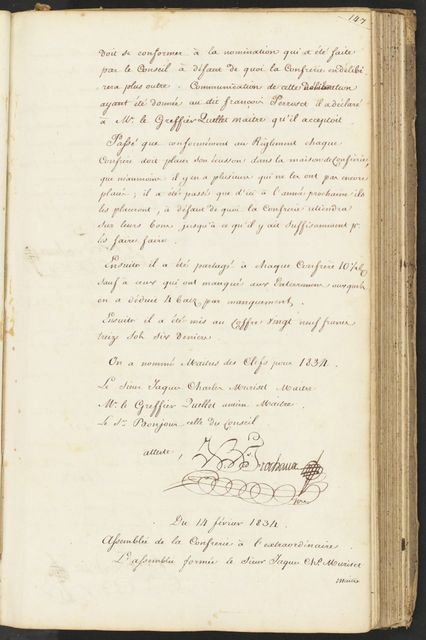 147
doit se conformer à la nomination qui a été faite
par le Conseil à défaut de quoi la Confrérie en délibé
rera plus outre. Communication de cette délibération
ayant été donnée au dit françois Perroset il a déclaré
à Mr. le Greffier Quellet maitre qu'il acceptoit.
Passé que conformément au Réglement chaque
Confrère doit placer son écusson dans la maison de Confrérie,
que néanmoins il y en a plusieurs qui ne les ont pas encore
placés; il a été passé que d'ici à l'année prochaine ils
les placeront, à défaut de quoi la Confrérie retiendra
sur leurs bons jusqu'à ce qu'il y ait suffisamment pr.
les faire faire.
Ensuite il a été partagé à chaque Confrère 10½ bz
sauf à ceux qui ont manqué aux Enterremens auxquels
on a déduit 4 batz par manquement,
Ensuite il a été mis au Coffre vingt neuf francs
treize sols six deniers.
On a nommé Maitres des Clefs pour 1834.
Le Sieur Jaque Charles Muriset Maitre
Mr. le Greffier Quellet ancien Maitre.
Le Sr. Bonjour celle du Conseil
atteste,
Frochaux
nore
Du 14 février 1834.
Assemblée de la Confrerie à l'extraordinaire.
L'assemblée formée le Sieur Jaque Chs. Muriset
Maitre